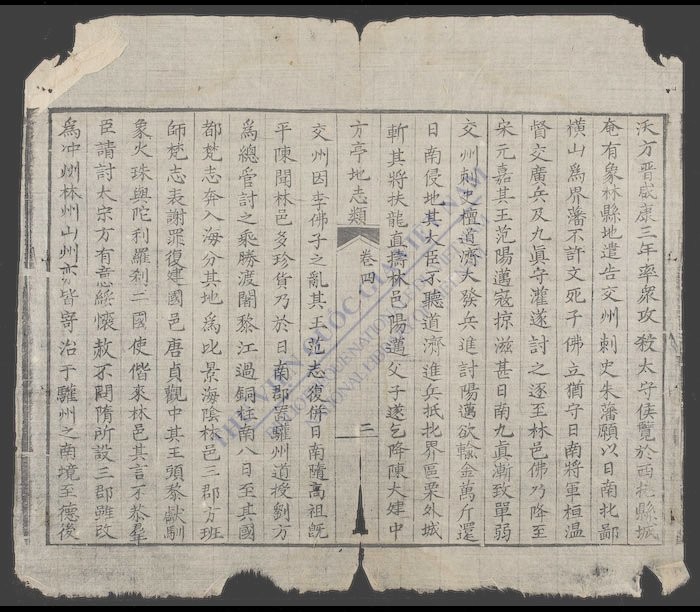 沃方晉咸康三年率衆攻殺太守侯覽於西捲縣城
奄有象林縣地遣告交州刺史朱藩願以日南北鄙
橫山爲界藩不許文死子佛立猶守日南將軍桓温
督交廣兵及九眞守灌遂討之逐至林邑佛乃降至
宋元嘉其王范陽邁寇掠滋甚日南九眞漸致單弱
交州刺史檀道濟大發兵進討陽邁欲輸金萬斤還
日南侵地其大臣不聽道濟進兵抵北界區栗外城
斬其將扶龍直擣林邑陽邁父子遂乞降陳大建中
方亭地志類
卷四
三
交州因李佛子之亂其王范志復併日南隨高祖旣
平陳聞林邑多珍貨乃於日南郡置驩州道授劉方
爲總管討之乘勝渡闍黎江過銅柱南八日至其國
都梵志奔入海分其地爲比景海陰林邑三郡方班
師梵志表謝罪復建國邑唐貞觀中其王頭黎獻馴
象火珠與陀利羅刹二國使偕來林邑其言不恭羣
臣請討太宗方有意綏懷赦不問隋所設三郡雖改
爲冲州林州山州亦皆寄治于驩州之南境至德後
THƯ VIỆN QUỐC GIA VIỆT NAM
NATIONAL LIBRARY OF VIETNAM